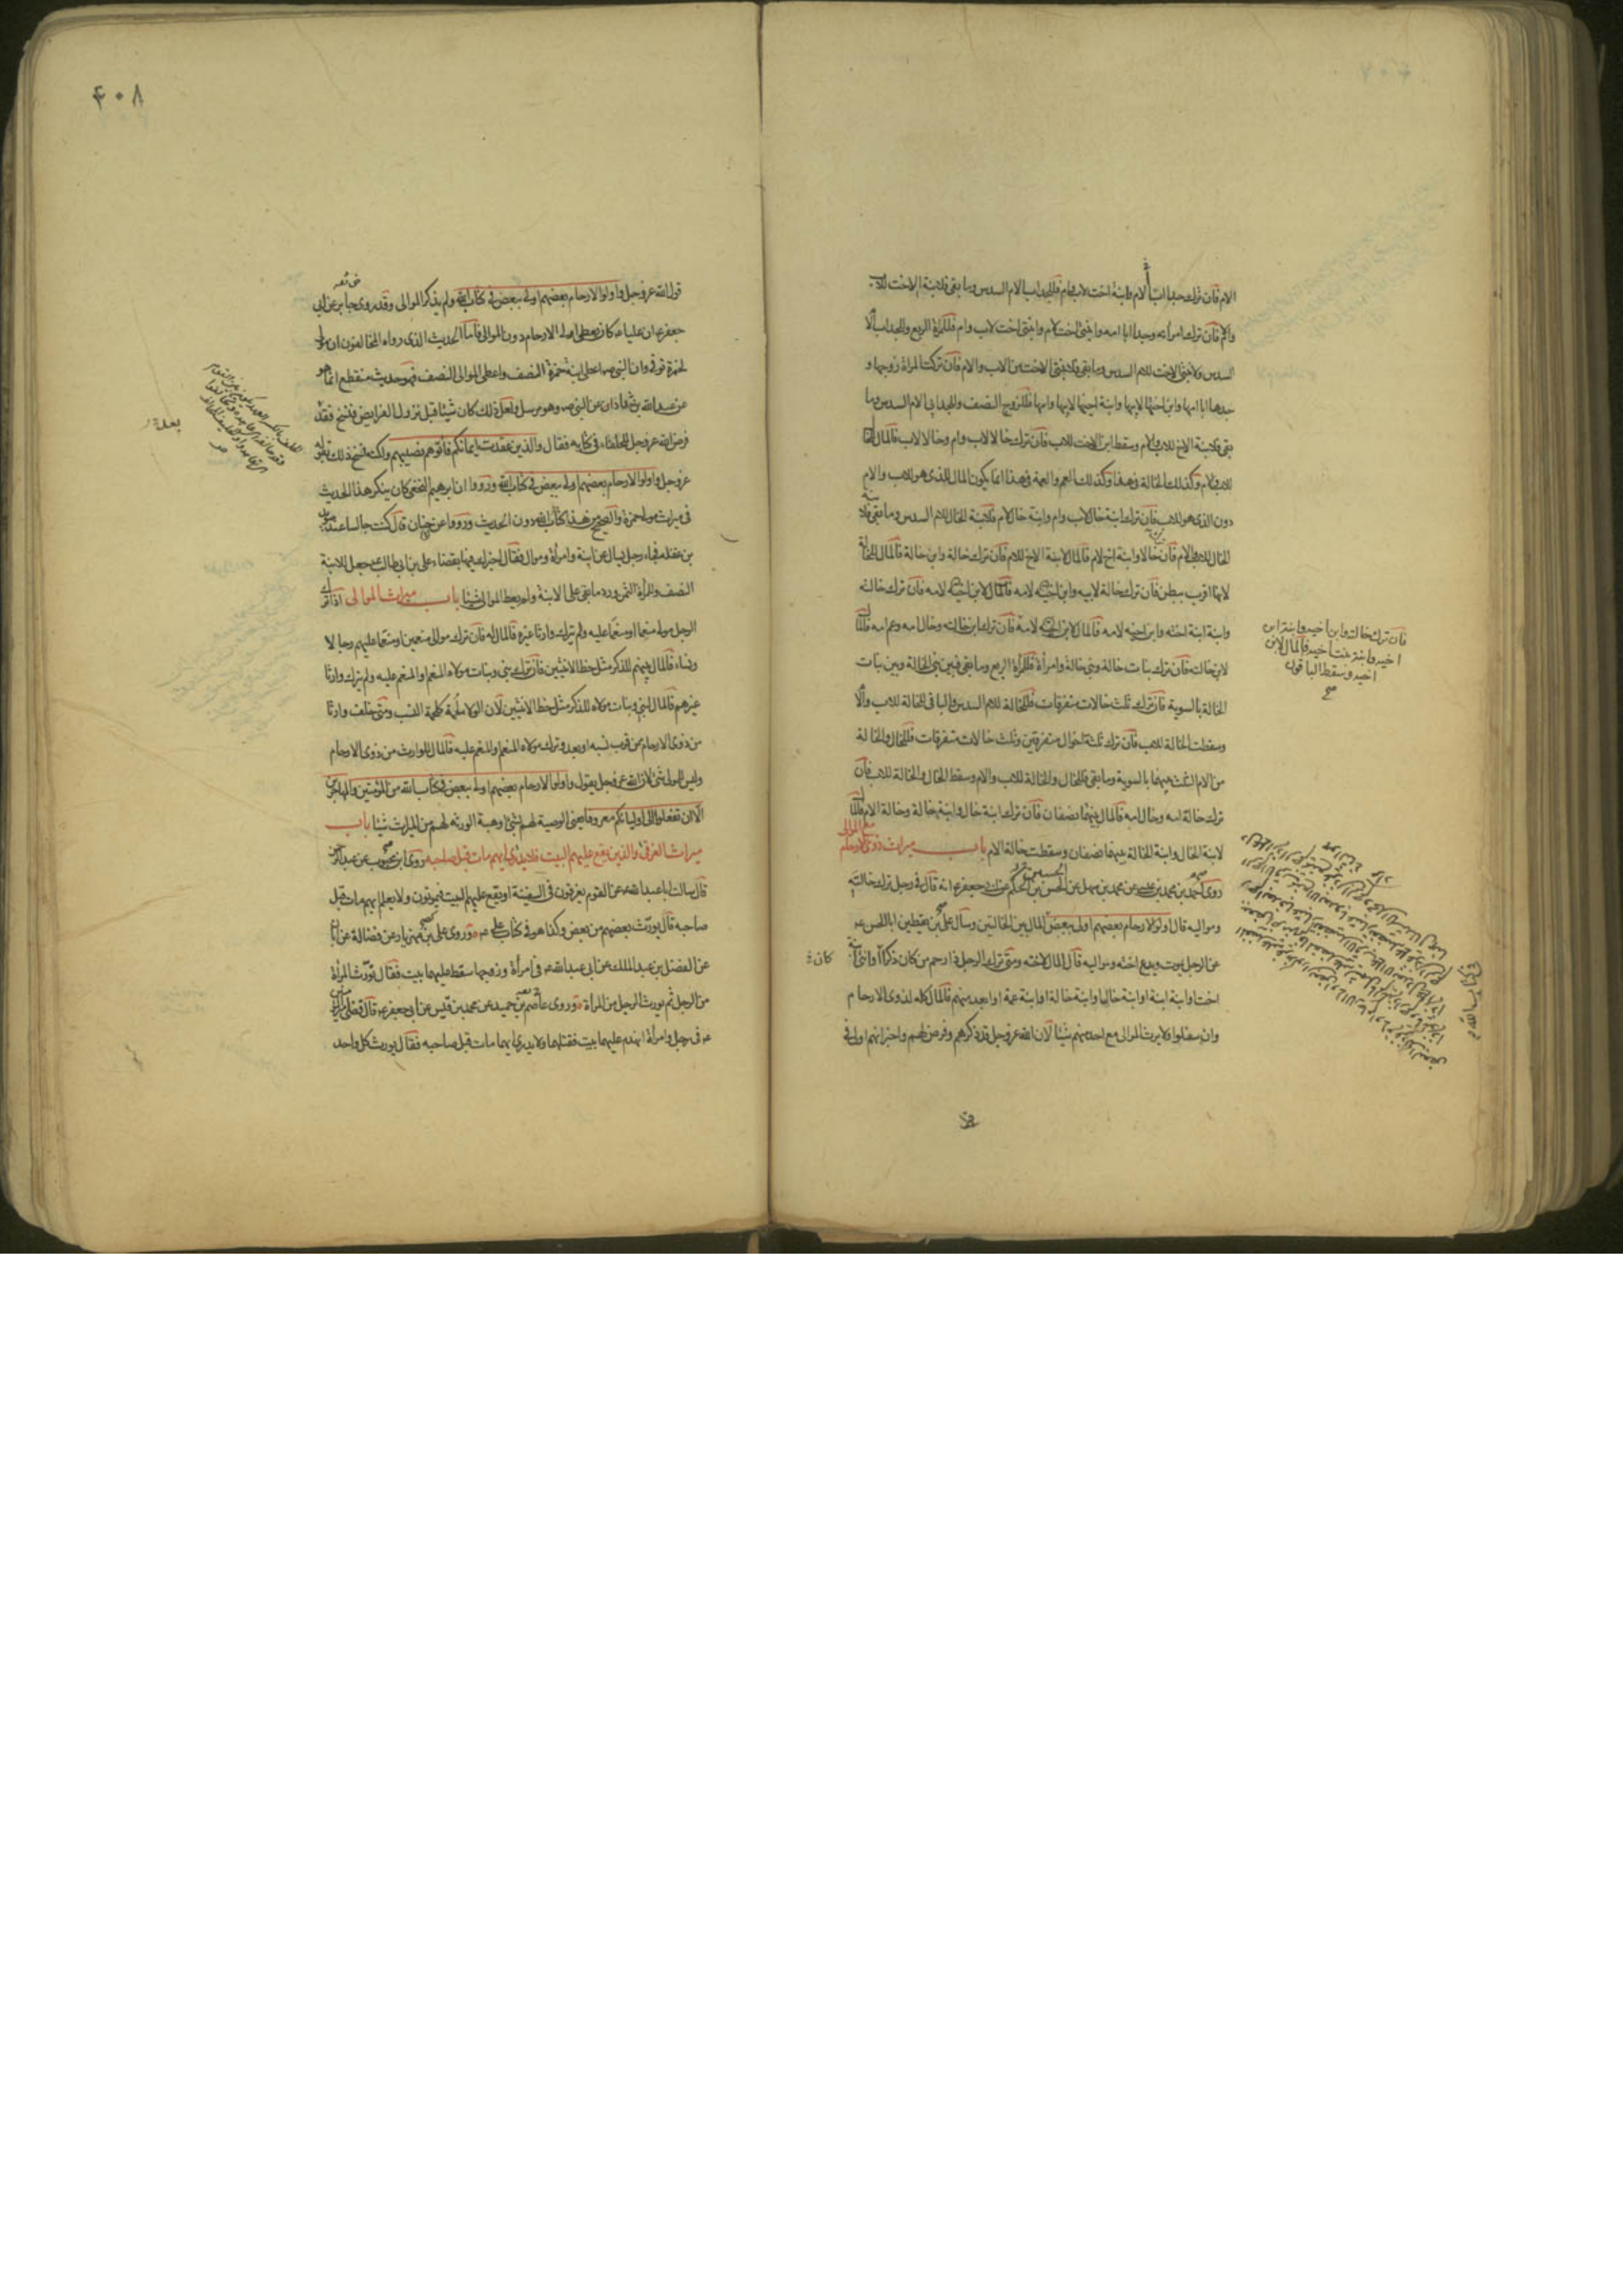 الام فان ترك جدا ابا الام وابنة اخت لاب وام فللجد اب الام السدس وما بقى فلابنة الاخت للاب
والام فان ترك امرأته وجدا ابا امه وابنتى اخت لام وابنتى اخت لاب وام فللمرأة الربع وللجد اب الام
السدس ولابنتى الاخت للام السدس وما بقى فلابنتى الاخت من الاب والام فان تركت المرأة زوجها و
جدها ابا امها وابن اختها لابيها وابنة اخيها لابيها وامها فللزوج النصف وللجد ابى الام السدس وما
بقى فلابنة الاخ للاب والام وسقط ابن الاخت للاب فان ترك خالا لاب وام وخالا لاب فالمال للخال
للاب والام وكذلك الخالة فى هذا وكذلك العم والعمة فى هذا انما يكون المال للذى هو للاب والام
دون الذى هو للاب فان ترك ابنة خال لاب وام وابنة خال لام فلابنة الخال للام السدس وما بقى فلابنة
الخال للاب والام فان خالا وابنة اخ لام فالمال لابنة الاخ للام فان ترك خالة وابن خالة فالمال للخالة
لانها اقرب ببطن فان ترك خالة لابيه وابن اخيه لامه فالمال لابن اخيه لامه فان ترك خالته
وابنة ابنة اخته وابن اخيه لامه فالمال لابن اخيه لامه فان ترك ابن خالته وخال امه وعم امه فالمال
لابن خالته فان ترك بنات خالة وبنى خالة وامرأة فللمرأة الربع وما بقى فبين بنى الخالة وبين بنات
الخالة بالسوية فان ترك ثلث خالات متفرقات فللخالة للام السدس والباقى للخالة للاب والام
وسقطت الخالة للاب فان ترك ثلثة اخوال متفرقين وثلث خالات متفرقات فللخال والخالة
من الام الثلث بينهما بالسوية وما بقى فللخال والخالة للاب والام وسقط الخال والخالة للاب فان
ترك خالة امه وخال امه فالمال بينهما نصفان فان ترك ابنة خال وابنة خالة وخالة الام فالمال
لابنة الخال وابنة الخالة بينهما نصفان وسقطت خالة الام باب ميراث ذوى الارحام مع الموالى
روى احمد بن محمد بن عيسى عن محمد بن سهل عن الحسن بن الحكم عن ابى جعفر ع انه قال فى رجل ترك خالتيه
ومواليه قال اولوا الارحام بعضهم اولى ببعض المال بين الخالتين وسأل على بن يقطين ابا الحسن ع
عن الرجل يموت ويدع اخته ومواليه قال المال لاخته ومتى ترك الرجل ذا رحم من كان ذكرا او انثى ابنة
اخت او ابنة ابنة او ابنة خال او ابنة خالة او ابنة عمة او ابعد منهم فالمال كله لذوى الارحام
وان سفلوا ولا يرث الموالى مع احد منهم شيئا لان الله عز وجل قد ذكرهم وفرض لهم واخبر انهم اولى فى
فان ترك خالته وابن اخيه وابنة ابن
اخيه وابنة بنت اخيه فالمال لابن
اخيه وسقط الباقون
صح
كان
٤٠٨
قول الله عز وجل واولوا الارحام بعضهم اولى ببعض فى كتاب الله ولم يذكر الموالى وقد روى جابر عن ابى
جعفر ع ان عليا ع كان يعطى اولى الارحام دون الموالى فاما الحديث الذى رواه المخالفون ان مولى
لحمزة توفى وان النبى ص اعطى ابنة حمزة النصف واعطى الموالى النصف فهو حديث منقطع انما هو
عن عبد الله بن شداد عن النبى ص وهو مرسل ولعل ذلك كان شيئا قبل نزول الفرايض فنسخ فقد
فرض الله عز وجل للحلفاء فى كتابه فقال والذين عقدت ايمانكم فآتوهم نصيبهم ولكنه نسخ ذلك بقوله
عز وجل واولوا الارحام بعضهم اولى ببعض فى كتاب الله ورووا ان ابرهيم النخعى كان ينكر هذا الحديث
فى ميراث مولى حمزة والصحيح من هذا كتاب الله دون الحديث ورووا عن حنان قال كنت جالسا عند سويد
بن غفلة فجاء رجل يسأل عن ابنة وامرأة وموال فقال اخبرك فيها بقضاء على بن ابى طالب ع جعل للابنة
النصف وللمرأة الثمن ورد ما بقى على الابنة ولم يعط الموالى شيئا باب ميراث الموالى اذا ترك
الرجل مولى منعما او منعما عليه ولم يترك وارثا غيره فالمال له فان ترك موالى منعمين او منعما عليهم رجالا
ونساء فالمال بينهم للذكر مثل حظ الانثيين فان ترك بنى وبنات مولاه المنعم او المنعم عليه ولم يترك وارثا
غيرهم فالمال لبنى وبنات مولاه للذكر مثل حظ الانثيين لان الولاء لحمة كلحمة النسب ومتى خلف وارثا
من ذوى الارحام ممن قرب نسبه او بعد وترك مولاه المنعم او المنعم عليه فالمال للوارث من ذوى الارحام
وليس للمولى شئ لان الله عز وجل يقول واولوا الارحام بعضهم اولى ببعض فى كتاب الله من المؤمنين والمهاجرين
الا ان تفعلوا الى اوليائكم معروفا يعنى الوصية لهم بشئ او هبة الورثة لهم من الميراث شيئا باب
ميراث الغرقى والذين يقع عليهم البيت فلا يدرى ايهم مات قبل صاحبه روى ابن محبوب عن عبد الرحمن
قال سالت ابا عبد الله ع عن القوم يغرقون فى السفينة او يقع عليهم البيت فيموتون ولا يعلم ايهم مات قبل
صاحبه قال يورث بعضهم من بعض وكذا هو فى كتاب على ع وروى على بن مهزيار عن فضالة عن ابان
عن الفضل بن عبد الملك عن ابى عبد الله ع فى امرأة وزوجها سقط عليهما بيت فقال تورث المرأة
من الرجل ثم يورث الرجل من المرأة وروى عاصم بن حميد عن محمد بن قيس عن ابى جعفر ع قال قضى امير المؤمنين
ع فى رجل وامرأة انهدم عليهما بيت فقتلهما ولا يدرى ايهما مات قبل صاحبه فقال يورث كل واحد